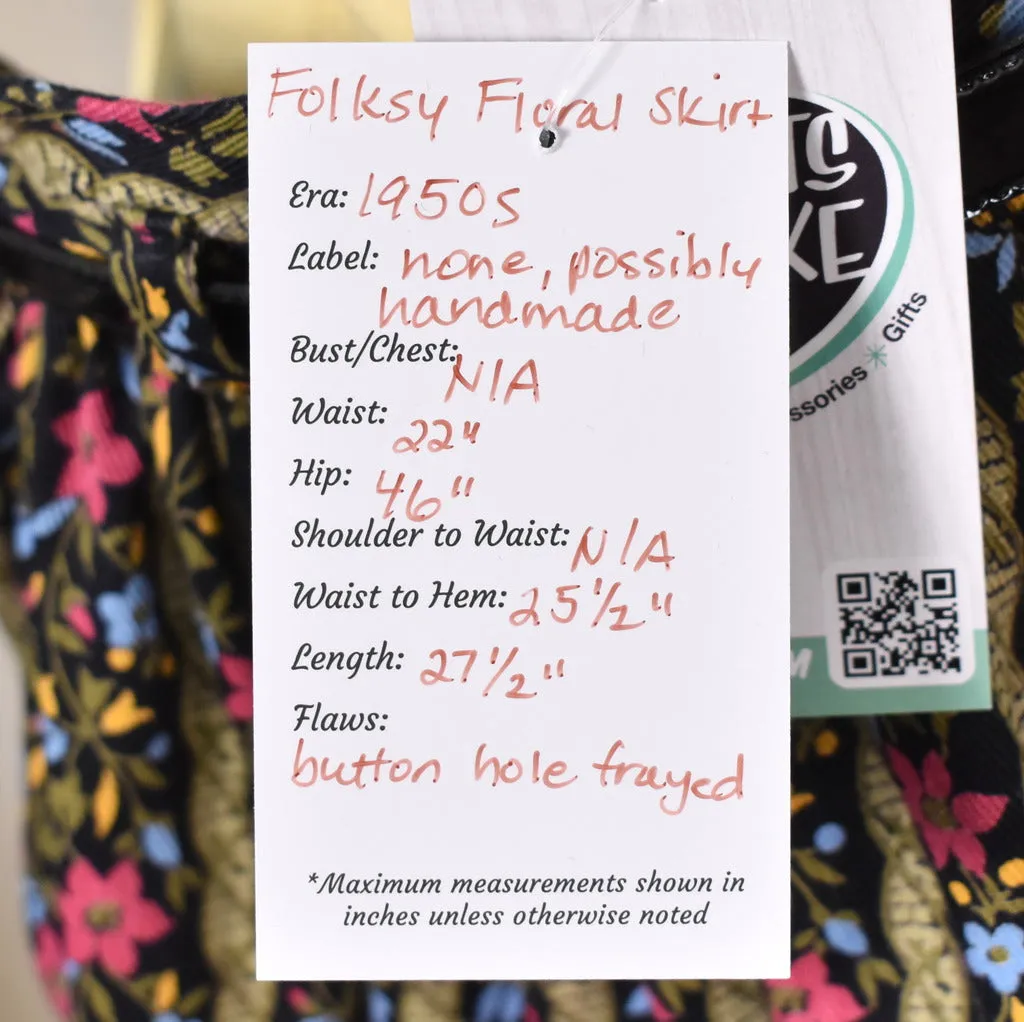 Folksy Floral Skirt
Era: 1950s
Label: none, possibly
handmade
Bust/Chest: N/A
Waist: 22"
Hip: 46"
Shoulder to Waist: N/A
Waist to Hem: 25 1/2"
Length: 27 1/2"
Flaws:
button hole frayed
*Maximum measurements shown in
inches unless otherwise noted
Gifts